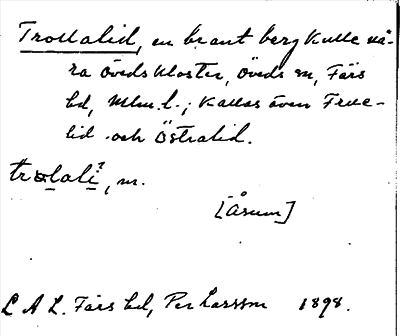 Trollalid, en brant bergkulle nä-
ra Övedskloster, Öveds sn, Färs
hd, Mlm. l.; kallas även Frue-
lid och Östralid.
trɷlali, m.
[Årum]
L A L. Färs hd, Per Larsson 1898.